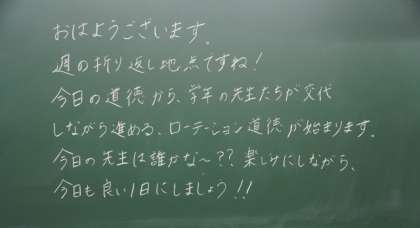 おはようございます。
週の折り返し地点ですね!
今日の道徳から、学年の先生たちが交代
しながら進める、ローテーション道徳が始まります。
今日の先生は誰かな〜??楽しみにしながら、
今日も良い1日にしましょう!!